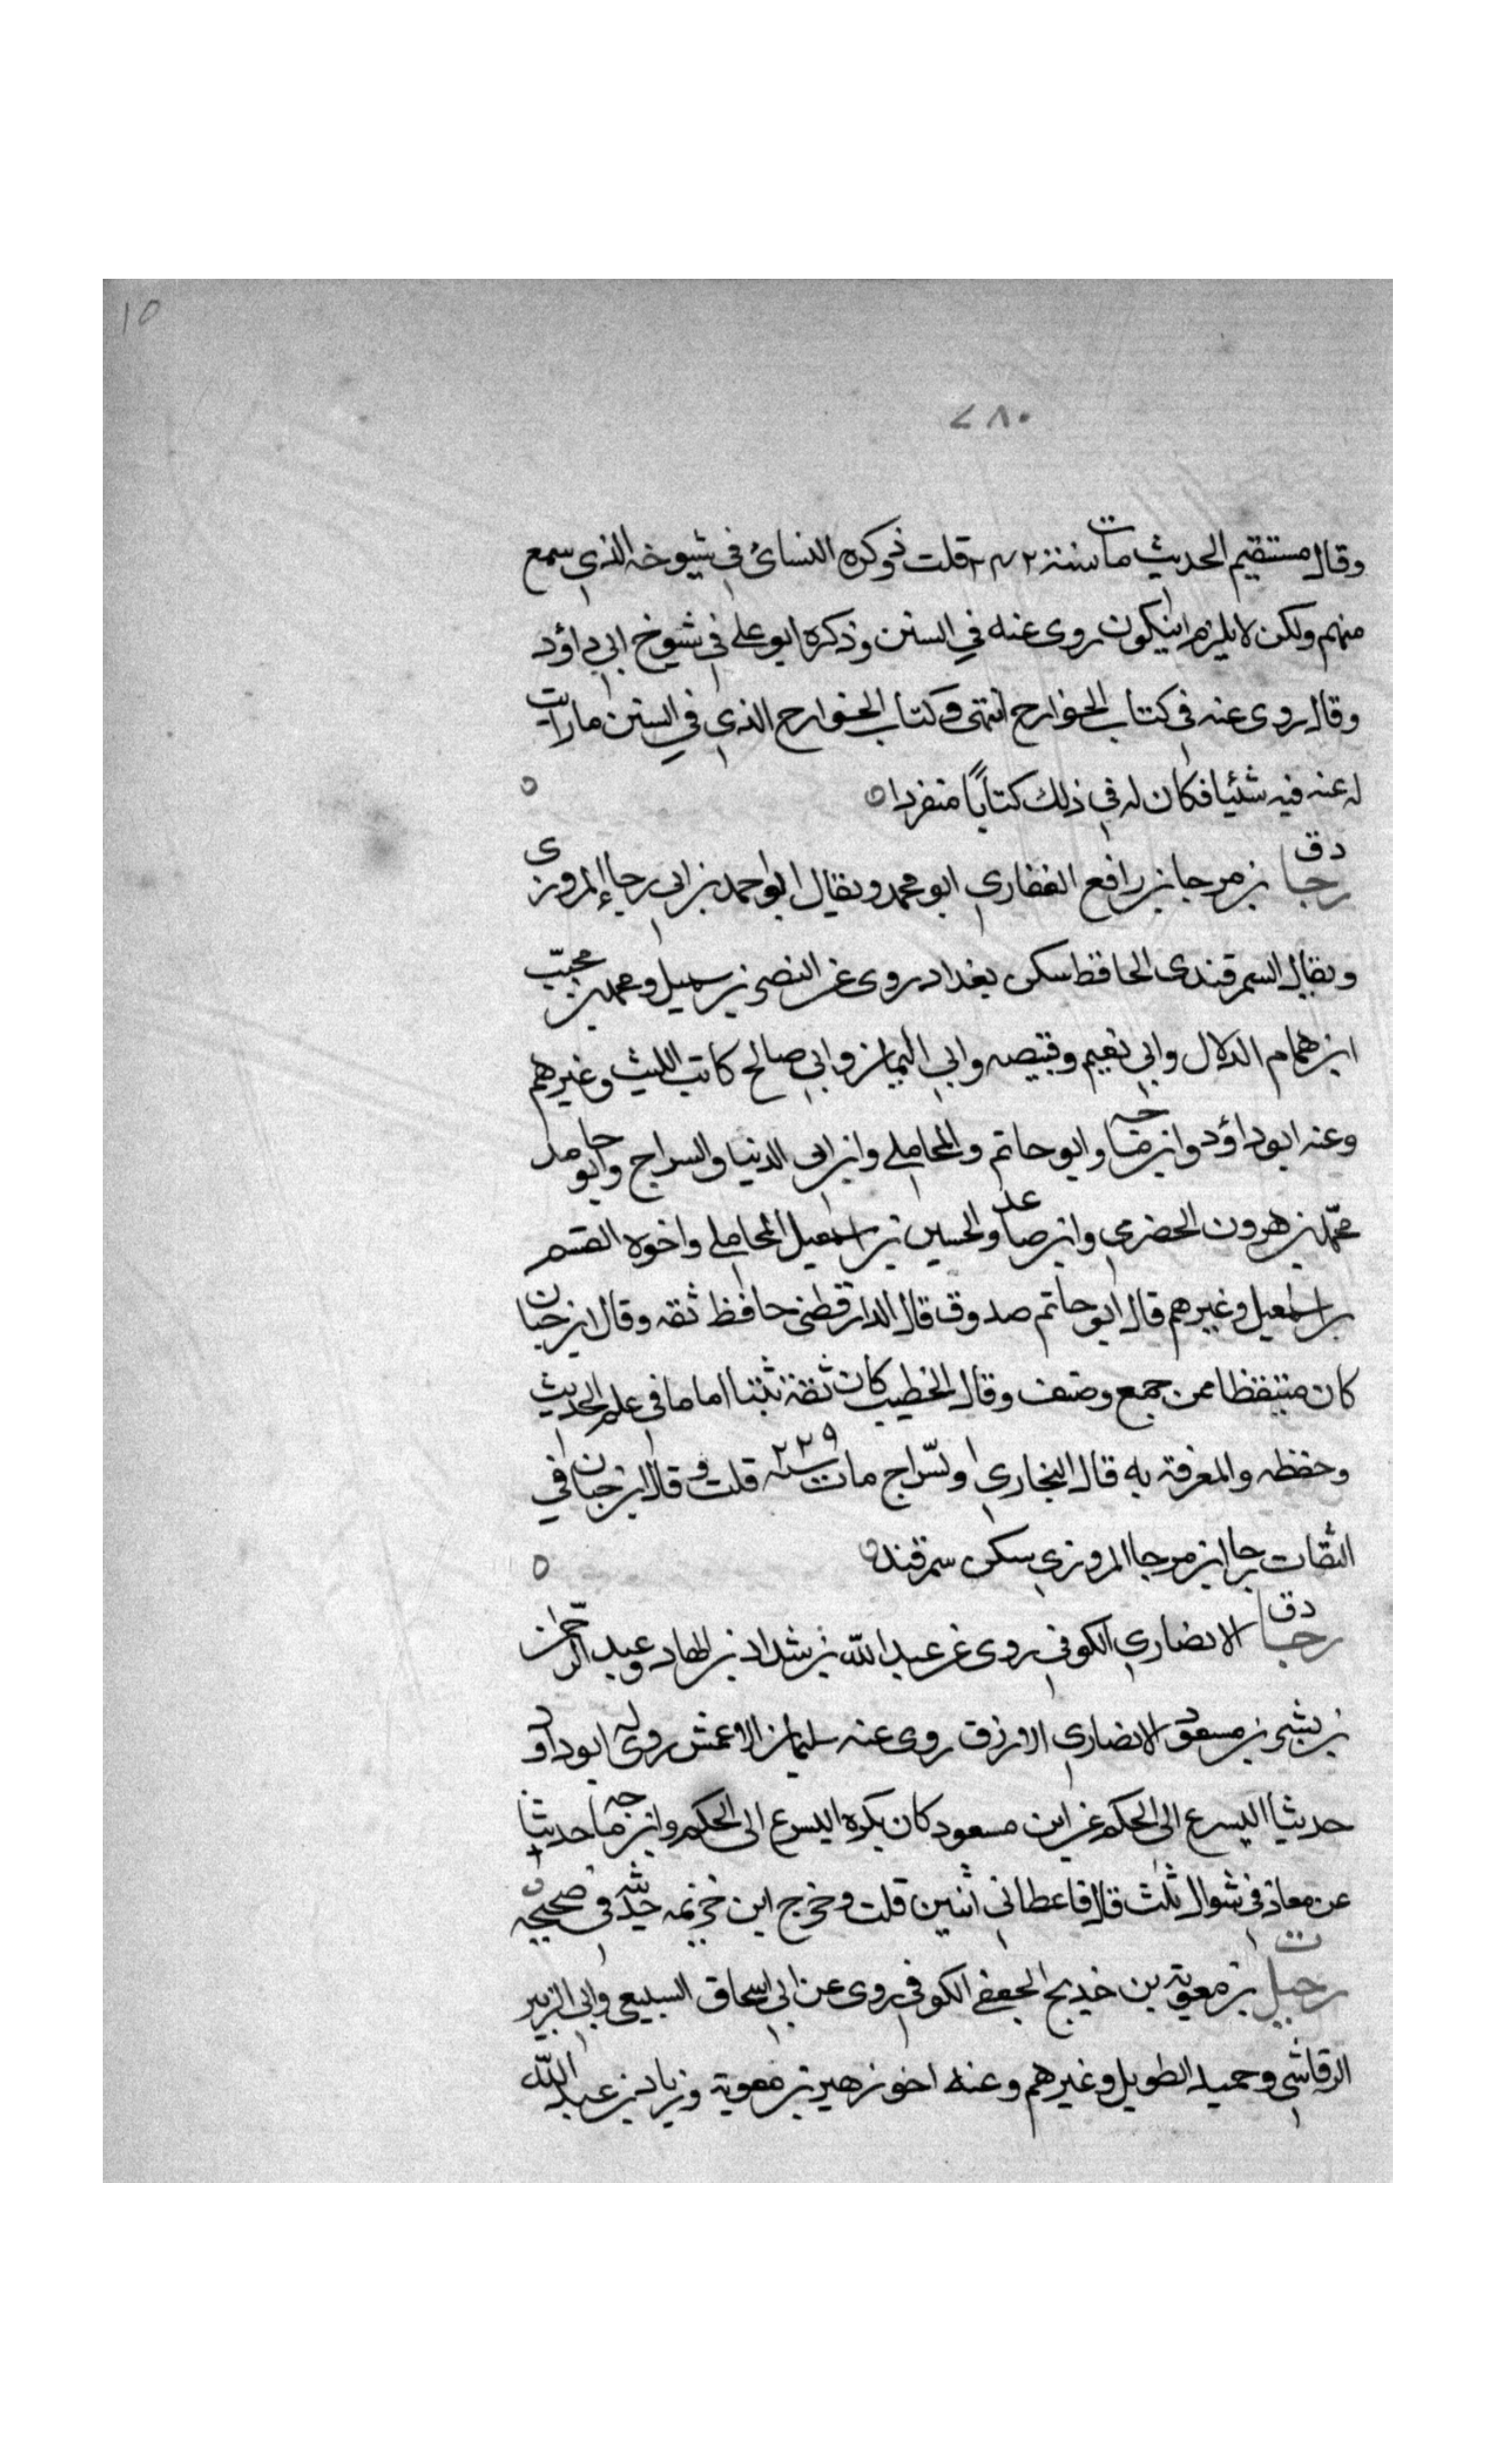 ١٥
٢٨٠
وقال مستقيم الحديث مات سنة قلت ذوكره النسائ في شيوخه الذي سمع
منهم ولكن لا يلزم ان يكون روى عنه في السنن وذكره ابو علي في شيوخ ابي داؤد
وقال روى عنه في كتاب الخوارج انتهى وكتاب الخوارج الذي في السنن ما رايت
له عنه فيه شئيا فكان له في ذلك كتابًا منفردا
دق
رجا بن مرجا بن رافع الغفاري ابو محمد ويقال ابو احمد بن ابي رجاء المروزى
ويقال السمرقندى الحافظ سكن بغداد روى عن النضر بن سهيل ومحمد بن محبّب
ابن همام الدلال وابي نعيم وقبيصه وابي اليمان وابي صالح كاتب الليث وغيرهم
وعنه ابو داؤد وابن ماجه وابو حاتم والمحاملي وابن ابي الدنيا والسراج وابو حامد
محمّد بن هرون الحضرمي وابن صاعد والحسين بن اسمعيل المحاملي واخوه القسم
بن اسمعيل وغيرهم قال ابو حاتم صدوق قال الدارقطني حافظ ثقه وقال ابن حبان
كان متيقظا ممن جمع وصنف وقال الخطيب كان ثقة ثبتا اماما في علم الحديث
وحفظه والمعرفة به قال البخاري ولسّراج مات سنه ٢٢٩ قلت وقال ابن حبان في
الثقات رجا ابن مرجا المروزي سكن سمرقند
دق
رجا الانصاري الكوفي روى عن عبد الله بن شداد بن الهاد وعبد الرحمن
بن بشر بن مسعود الانصاري الازرق روى عنه سليمان الاعمش روى له ابو داود
حديثا اليسرع الى الحكم عن ابن مسعود كان يكره اليسرع الى الحكم وابن ماجه حديثا
عن معاذ في شوال ثلث قال فاعطاني اثنين قلت وخرج ابن خزيمه حديثه في صحيحه
ت
رحيل بن معوية بن خديج الجعفي الكوفي روى عن ابي اسحاق السبيعي وابي الزبير
الرقاشي وحميد الطويل وغيرهم وعنه اخو زهير بن معوية وزياد بن عبد الله